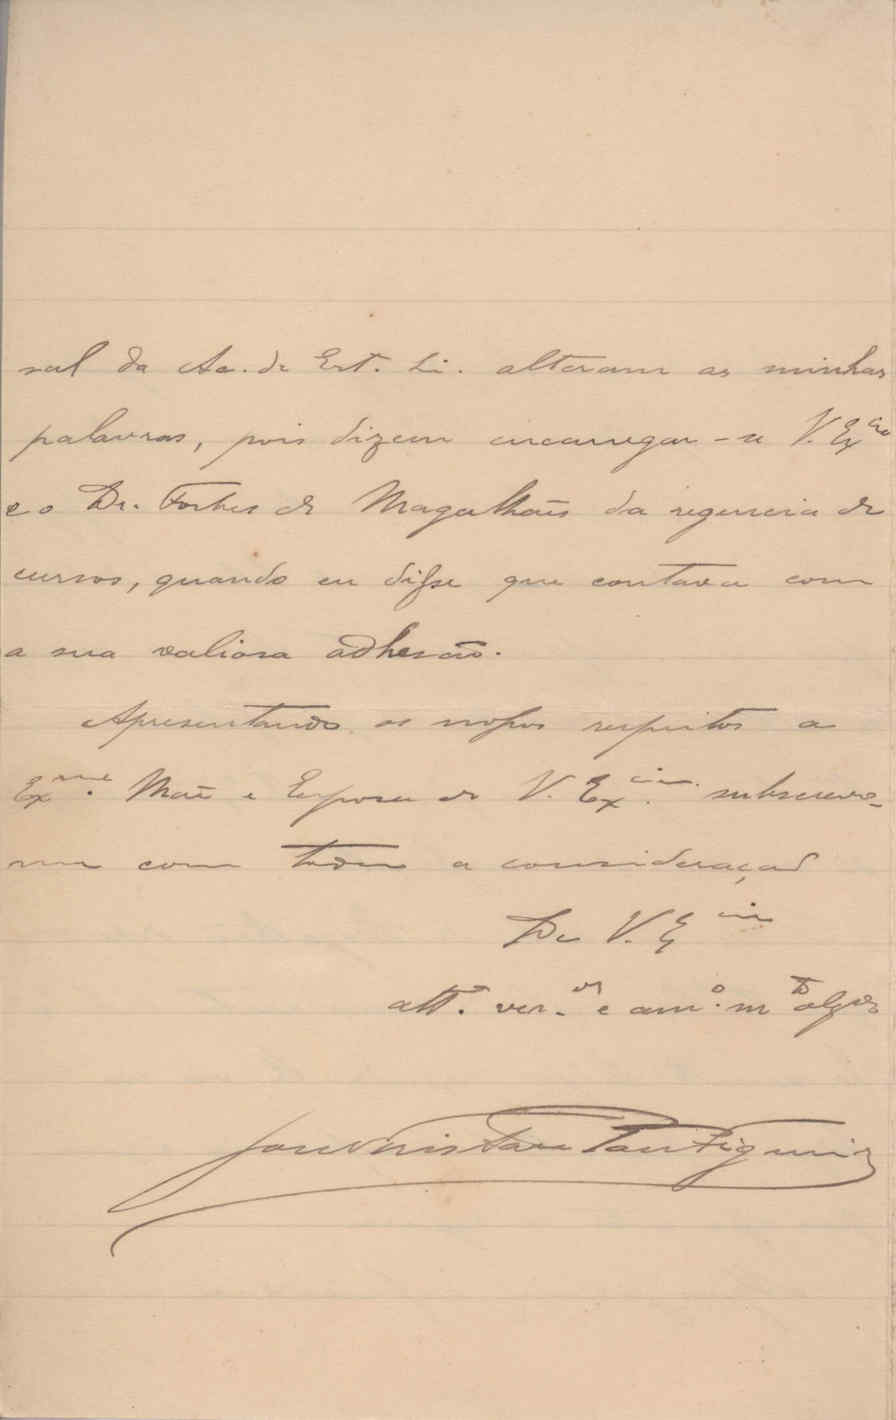 sal da Ac. de Est. Li. alteram as minhas
palavras, pois dizem encarregar-se V. Ex.cia
e o Dr. Fortes de Magalhães da regencia de
cursos, quando eu disse que contava com
a sua valiosa adhesão.
Apresentando os nossos respeitos a
Ex.ma Mãe e Esposa de V. Ex.cia subscrevo-
me com toda a consideração
De V. Ex.cia
att.o ven.or e am.o m.to obg.do